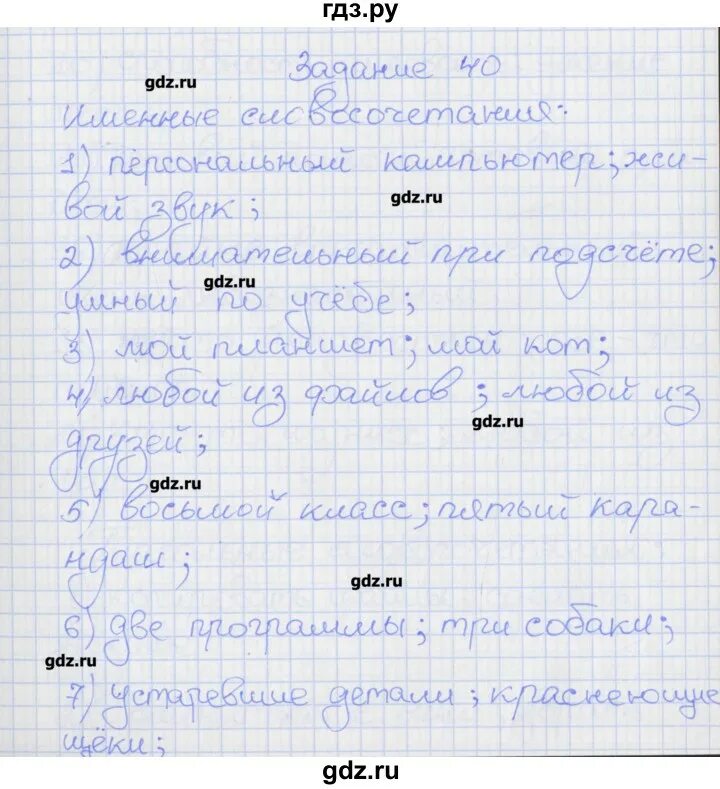 гдз.ру
Задание 40
gdz.ru
Именные словосочетания:
1) персональный кампьютер; жи-
gdz.ru
вой звук;
2) внимательный при подсчёте;
gdz.ru
умный по учёбе;
3) мой планшет; мой кот;
4) любой из файлов; любой из
gdz.ru
друзей;
gdz.ru
5) восьмой класс; пятый кара-
ндаш;
gdz.ru
6) две программы; три собаки;
gdz.ru
7) устаревшие детали; краснеющие
щёки;
gdz.ru